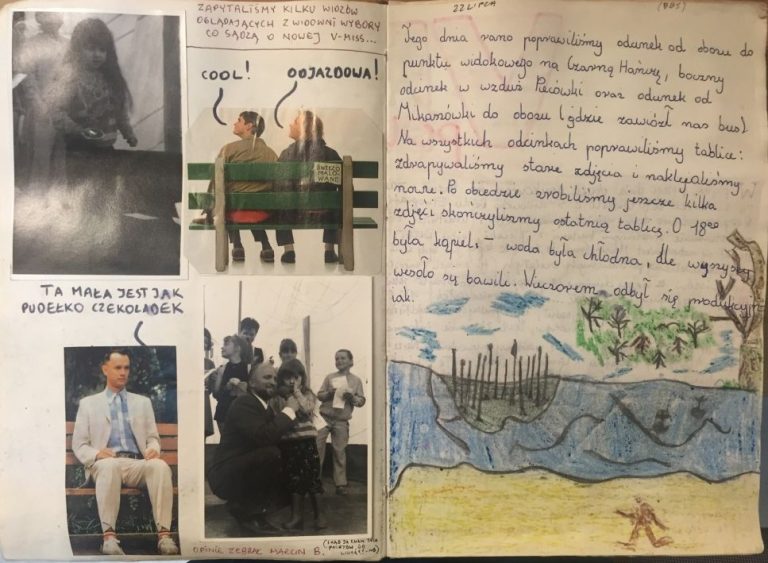 ZAPYTALIŚMY KILKU WIDZÓW
OGLĄDAJĄCYCH Z WIDOWNI WYBORY
CO SĄDZĄ O NOWEJ V-MISS...
COOL!
ODJAZDOWA!
ŚWIEŻO
MALO
WANE
TA MAŁA JEST JAK
PUDEŁKO CZEKOLADEK
OPINIE ZEBRAŁ MARCIN B.
22 LIPCA
Tego dnia rano poprawiliśmy odunek od obozu do
punktu widokowego na Czarną Hańczę, boczny
odunek w wzdłuż Pięciówki oraz odunek od
Mikaszówki do obozu (gdzie zawiózł nas bus)
Na wszystkich odcinkach poprawiliśmy tablice:
zdrapywaliśmy stare zdjęcia i naklejaliśmy
nowe. Po obiedzie zrobiliśmy jeszcze kilka
zdjęć i skończyliśmy ostatnią tablicę. O 18⁰⁰
była kąpiel – woda była chłodna, dle wszyscy
wesoło się bawili. Wieczorem odbył się